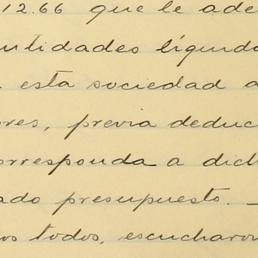 12.66 que le ade
ntidades líquida
esta sociedad a
res, previa deduc
orresponda a dich
ado presupuesto. —
os todos, escucharon